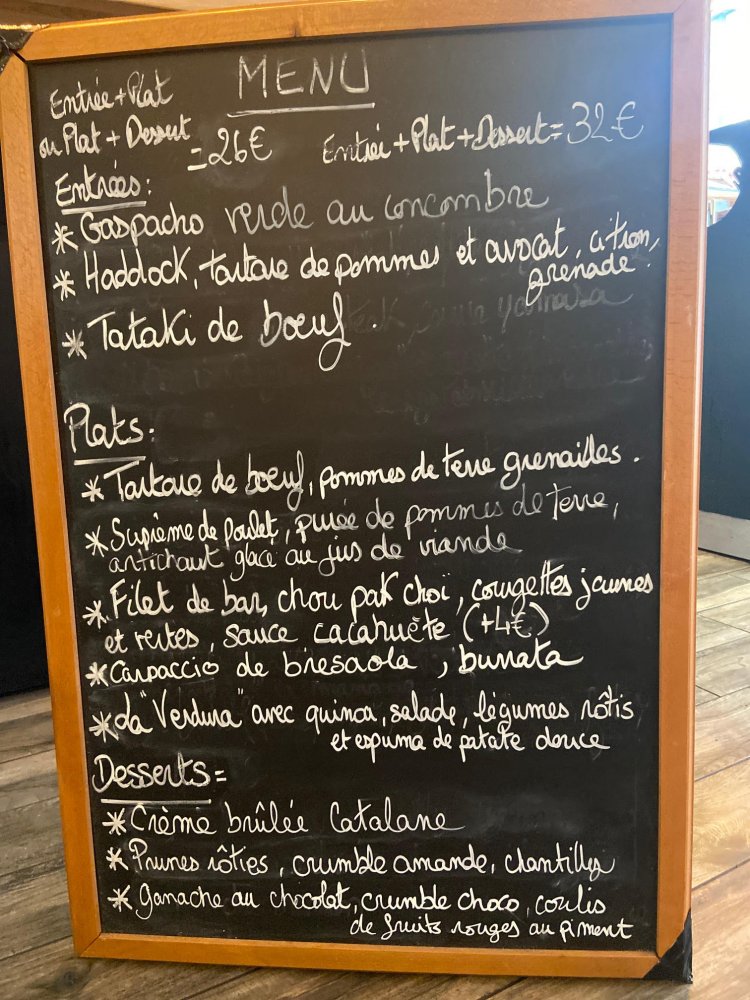 MENU
Entrée + Plat
ou Plat + Dessert = 26€
Entrée + Plat + Dessert = 32€
Entrées :
* Gaspacho verde au concombre
* Haddock, tartare de pommes et avocat, citron,
grenade.
* Tataki de bœuf.
Plats :
* Tartare de bœuf, pommes de terre grenailles.
* Suprême de poulet, purée de pommes de terre,
artichaut glacé au jus de viande
* Filet de bar, chou pak choï, courgettes jaunes
et vertes, sauce cacahuète (+4€)
* Carpaccio de bresaola, burrata
* La "Verdura" avec quinoa, salade, légumes rôtis
et espuma de patate douce
Desserts =
* Crème brûlée Catalane
* Prunes rôties, crumble amande, chantilly
* Ganache au chocolat, crumble choco, coulis
de fruits rouges au piment